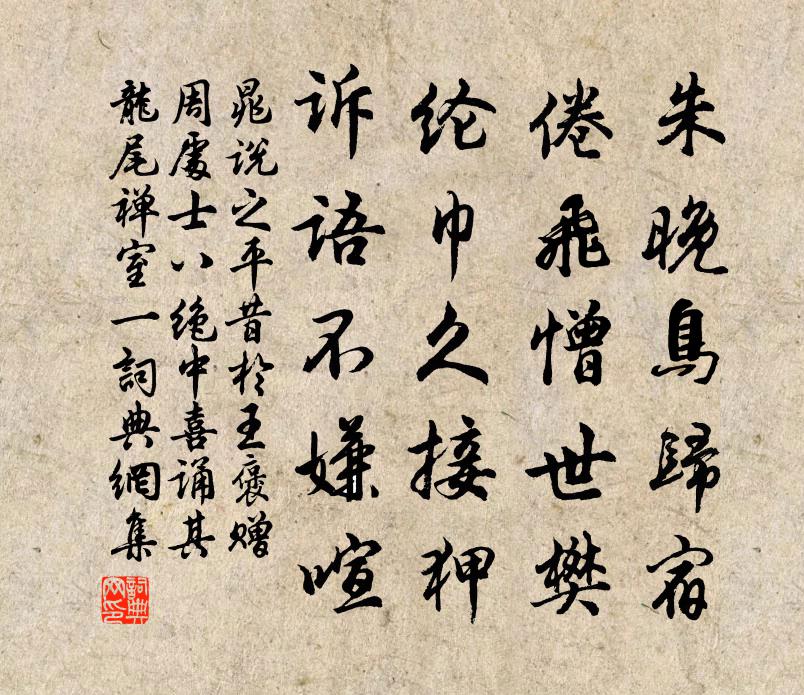 朱晚鳥歸宿
倦飛憎世樊
纶巾久接狎
訴語不嫌喧
晁说之平昔於王褒赠
周處士八绝中喜诵其
龍尾禅室一詞典網集
詞典網印